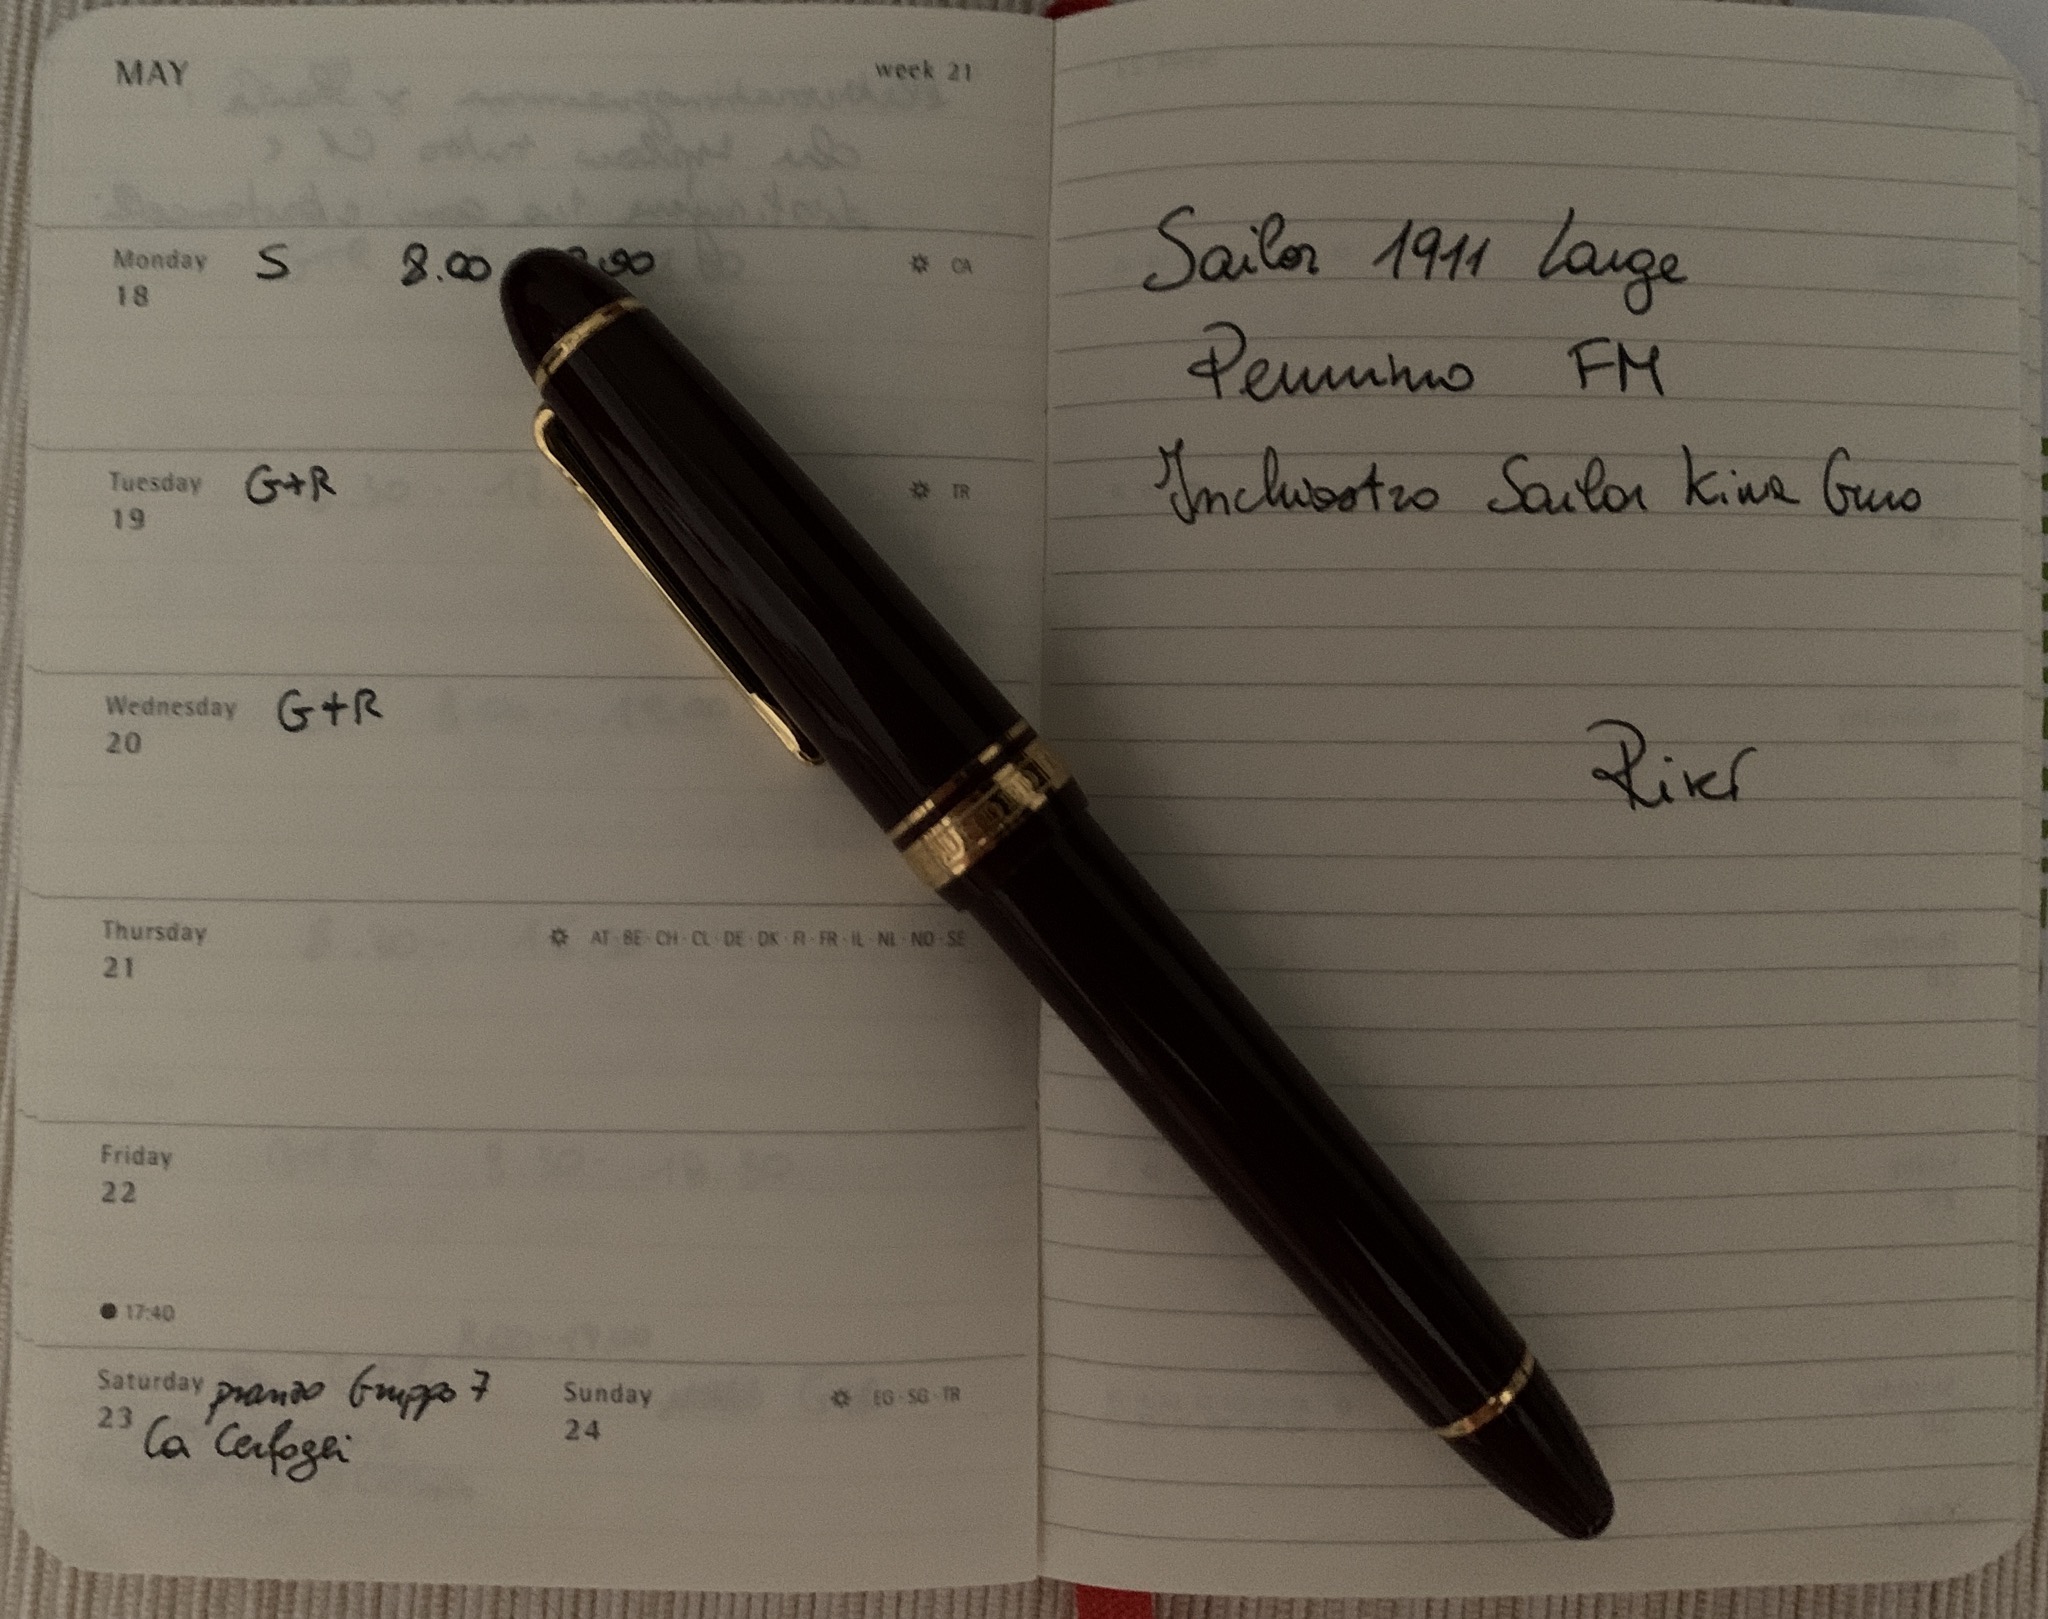 MAY week 21
Monday S 8.00
18 CA
Tuesday G+R TR
19
Wednesday G+R
20
Thursday AT · BE · CH · CL · DE · DK · FI · FR · IL · NL · NO · SE
21
Friday
22
17:40
Saturday pranzo Gruppo 7
23 Ca Cerfogli
Sunday EG · SG · TR
24
Sailor 1911 Large
Pennino FM
Inchiostro Sailor Kiwa Guro